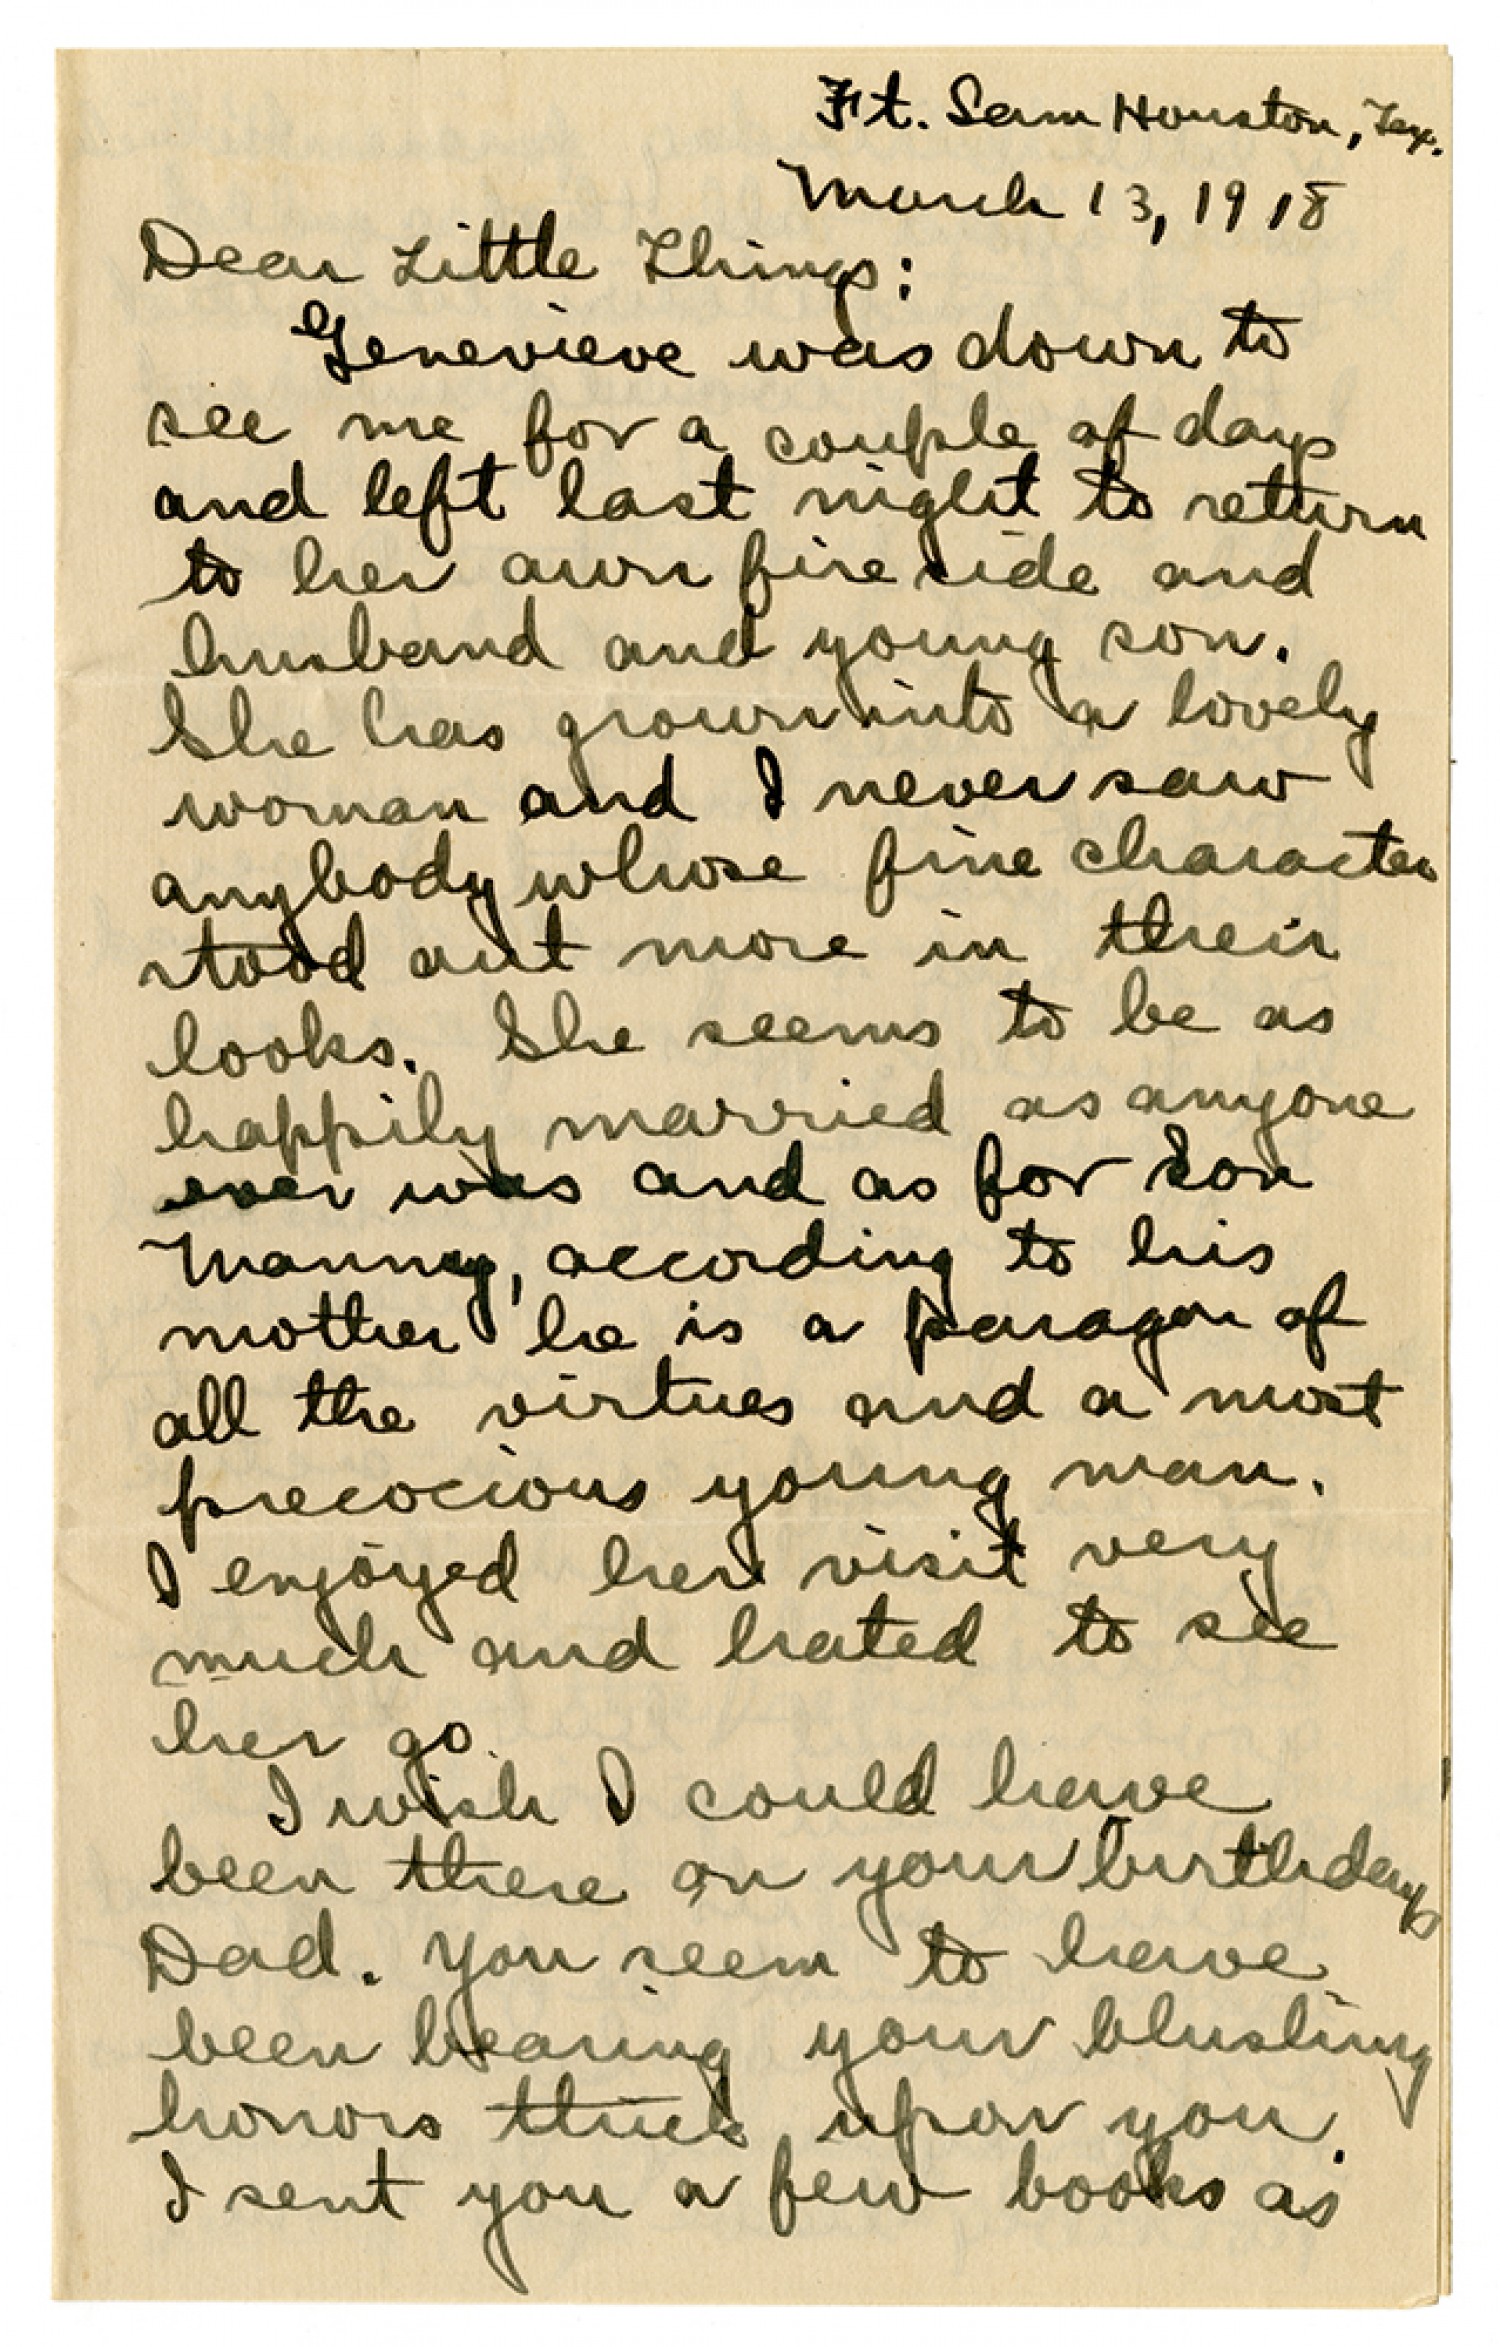 Ft. Sam Houston, Tex.
March 13, 1918
Dear Little Things:
Genevieve was down to
see me for a couple of days
and left last night to return
to her own fireside and
husband and young son.
She has grown into a lovely
woman and I never saw
anybody whose fine character
stood out more in their
looks. She seems to be as
happily married as anyone
ever was and as for Son
Manny, according to his
mother he is a paragon of
all the virtues and a most
precocious young man.
I enjoyed her visit very
much and hated to see
her go.
I wish I could have
been there on your birthday
Dad. You seem to have
been bearing your blushing
honors thick upon you.
I sent you a few books as